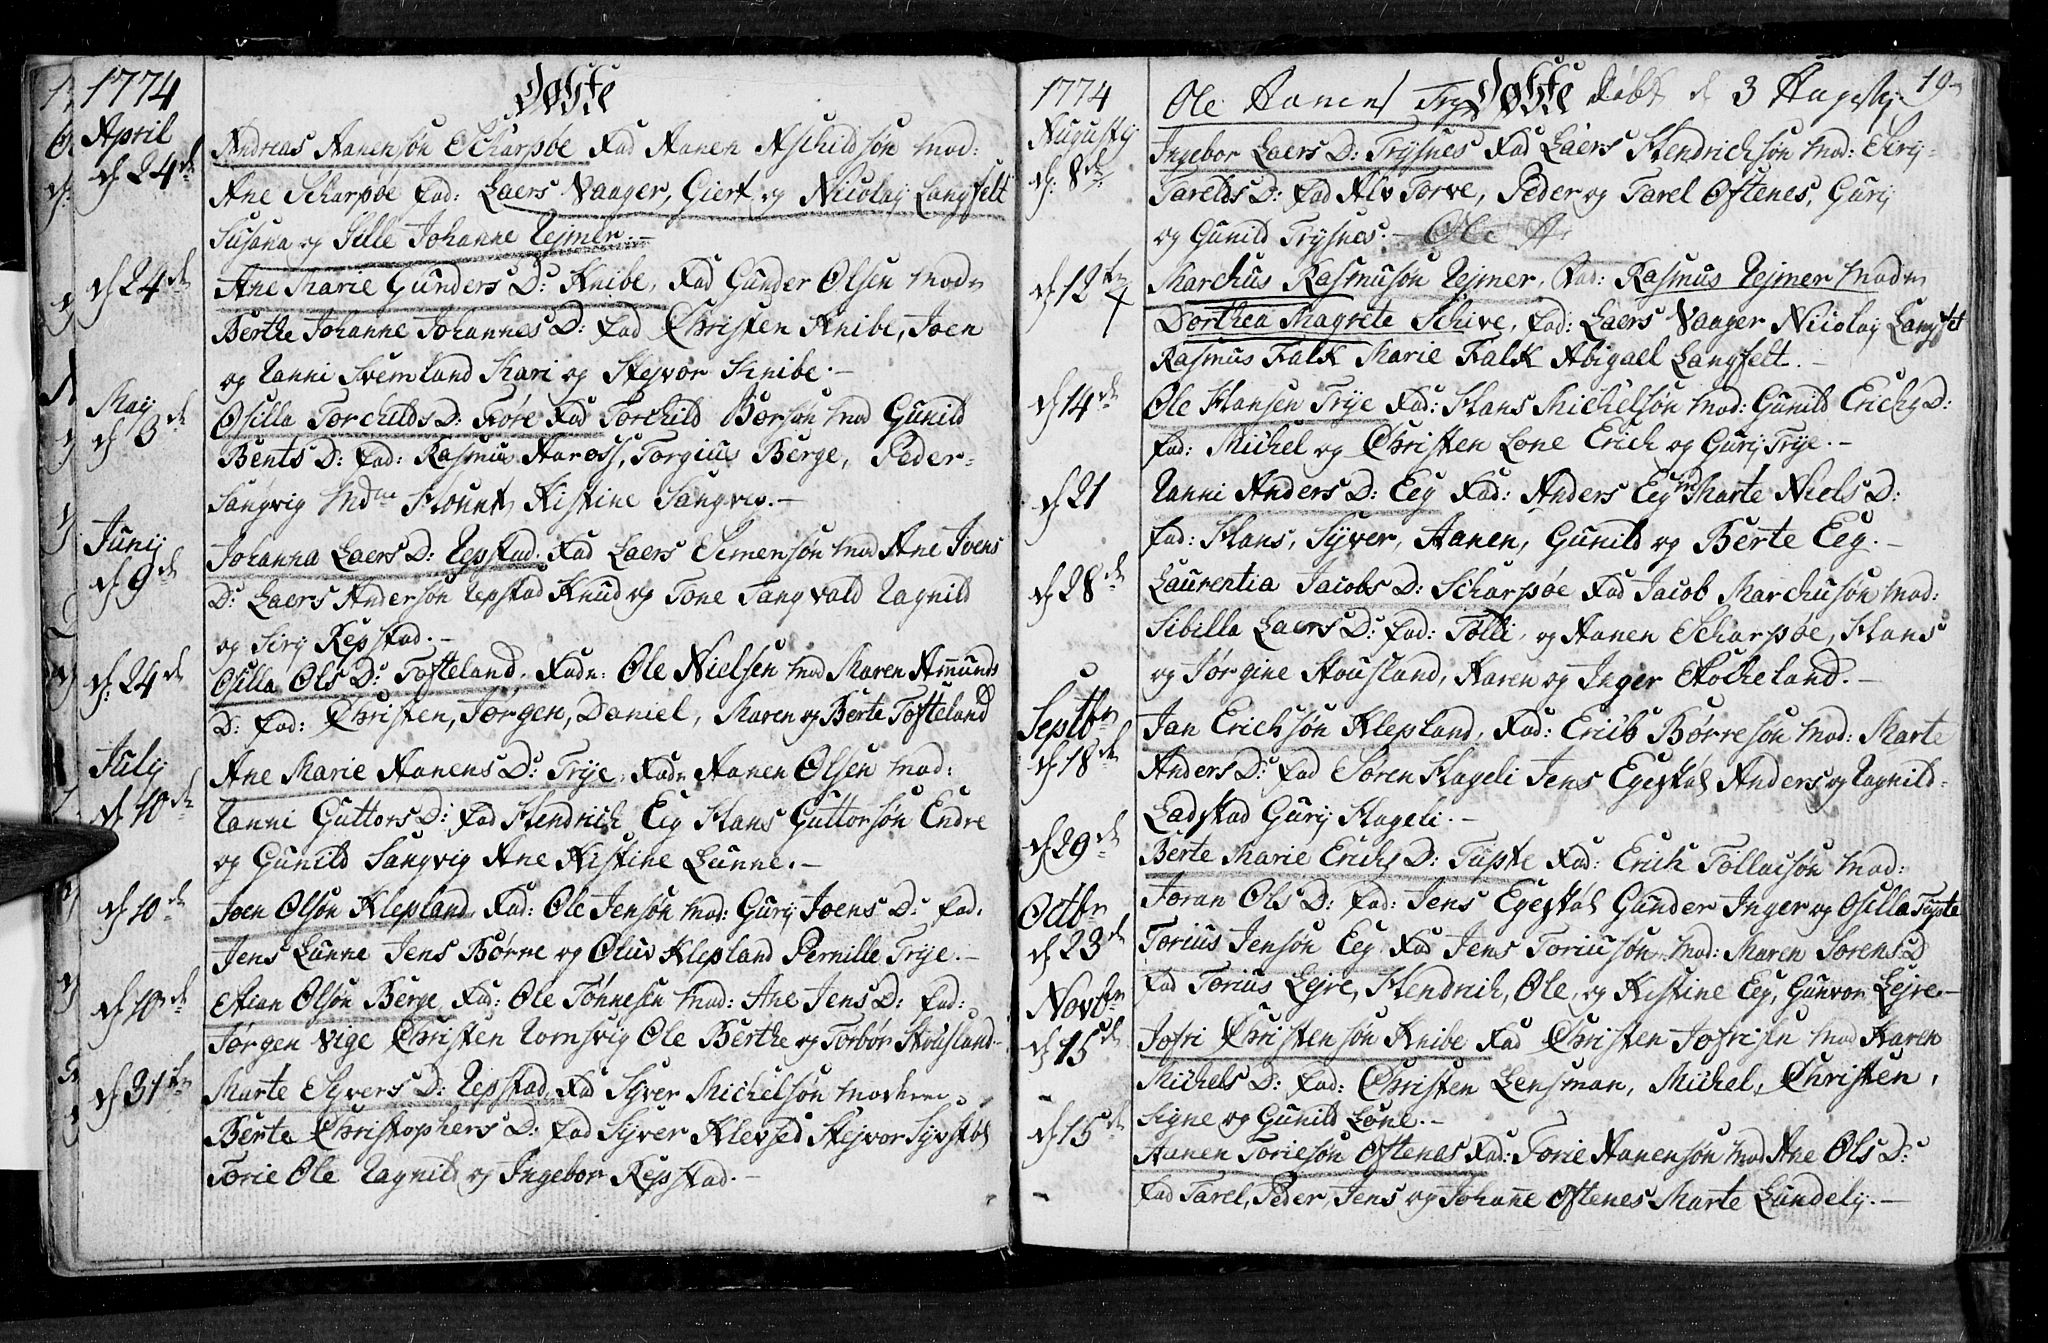 1774
Døbte
April
d 24de
Andreas Aanensøn Scharpøe Fad Aanen Aschildsøn Mod:
Ane Scharpøe fad: Laers Vaager, Giert og Nicolaij Langfelt
Susana og Sille Johanne Rejmer.—
d 24de
Ane Marie Gunders D: Knibe, Fad Gunder Olsen Modr
Berthe Johanne Johannes D: fad Christen Knibe, Joen
og Ranni Svemland Kari og Stejvor Knibe.—
May
d 3de
Osilla Torchilds D: Fad Torchild Borson Mod Gunild
Bents D: fad: Rasmus Aaross, Torgius Berge, Peder
Sangvig Kistine Sangvig.—
Junij
d 9de
Johanna Laers D: Repstad. Fad Laers Simensøn Mod Ane Ivers
D: Laers Andersøn Repstad Knud og Tone Tangvald Ragnild
og Sirij Repstad.—
d: 24de
Osilla Ols D: Tofteland, Fadr: Ole Nielsen Mod Maren Amunds
D: fad: Christen, Jørgen, Daniel, Maren og Berte Tofteland
Julij
d 10de
Ane Marie Aanens D: Trye, Fadr Aanen Olsen Mod:
Ranni Guttors D: fad Hendrich Eeg Hans Guttorsøn Endre
og Gunild Sangvig Ane Kistine Lunne.—
d 10de
Joen Olsøn Klepland Fad: Ole Jensøn Mod: Gurij Joens D: fad.
Jens Lunne Jens Børne og Oluv Klepland Pernille Trye.—
d 10de
Stian Olsøn Berge Fad: Ole Tønnesen Mod: Ane Jens D: fad:
Jørgen Vige Christen Romsvig Ole Berthe og Torbør Housland.
d 31te
Marte Syvers D: Repstad, Fad Syver Michelsøn Moderen
Berte Christophers D: fad Syver Klevsed Stejvor
Torie Ole Ragnild og Ingebor Repstad.—
1774
Ole Aanens Trye Døbte døbt d 3 Augustij 19
Augustij
d: 8de
Ingebor Laers D: Trysnes Fad Laers Hendrichsøn Mod: Sirij
Tarelds D: fad Alv Torve, Peder og Tarel Oftenes, Gurij
og Gunild Trysnes.— Ole A
d 12te
Marchus Rasmusøn Rejmer, Fad: Rasmus Rejmer Modr
Dorthea Magrete Schive, fad: Laers Vaager Nicolaj Langfelt
Rasmus Falk Marie Falk Abigael Langfelt.—
d 14de
Ole Hansen Trye Fad: Hans Michelsøn Mod: Gunild Erichs D:
fad: Michel og Christen Lone Erich og Gurij Trye.—
d 21
Ranni Anders D: Eeg Fad: Anders Eeg M Marte Niels D:
fad: Hans, Syver, Aanen, Gunild og Berte Eeg.—
d 28de
Laurentia Jacobs D: Scharpøe Fad Jacob Marchusøn Mod:
Sibilla Laers D: fad: Tolli, og Aanen Scharpøe, Hans
og Jørgine Housland, Karen og Inger Stocheland.—
Septbr
d 18de
Jan Erichsøn Klepland, Fad: Erich Børresøn Mod: Marte
Anders D: fad Søren Hageli Jens Anders og Ragnild
Ladstad Gurij Hageli.—
d 29de
Berte Marie Erichs D: Tupte Fad: Erich Tollacsøn Mod:
Joran Ols D: fad: Jens Gunder Inger og Osilla Tupte
Octbr
d 23de
Torius Jensøn Eeg Fad Jens Toriusøn Mod: Maren Sørens D
fad Torius Lejre, Hendrich, Ole, og Kistine Eeg, Gunvor Lejre.—
Novbr
d 15de
Jofri Christensøn Knibe Fad Christen Jofrisen Mod Karen
Michels D: fad: Christen Lensman, Michel, Christen,
Signe og Gunild Lone.—
d 15de
Aanen Toriesøn Oftenes Fad: Torie Aanensøn Mod Ane Ols D:
fad Tarel, Peder, Jens og Johanne Oftenes Marte Lundelij.—